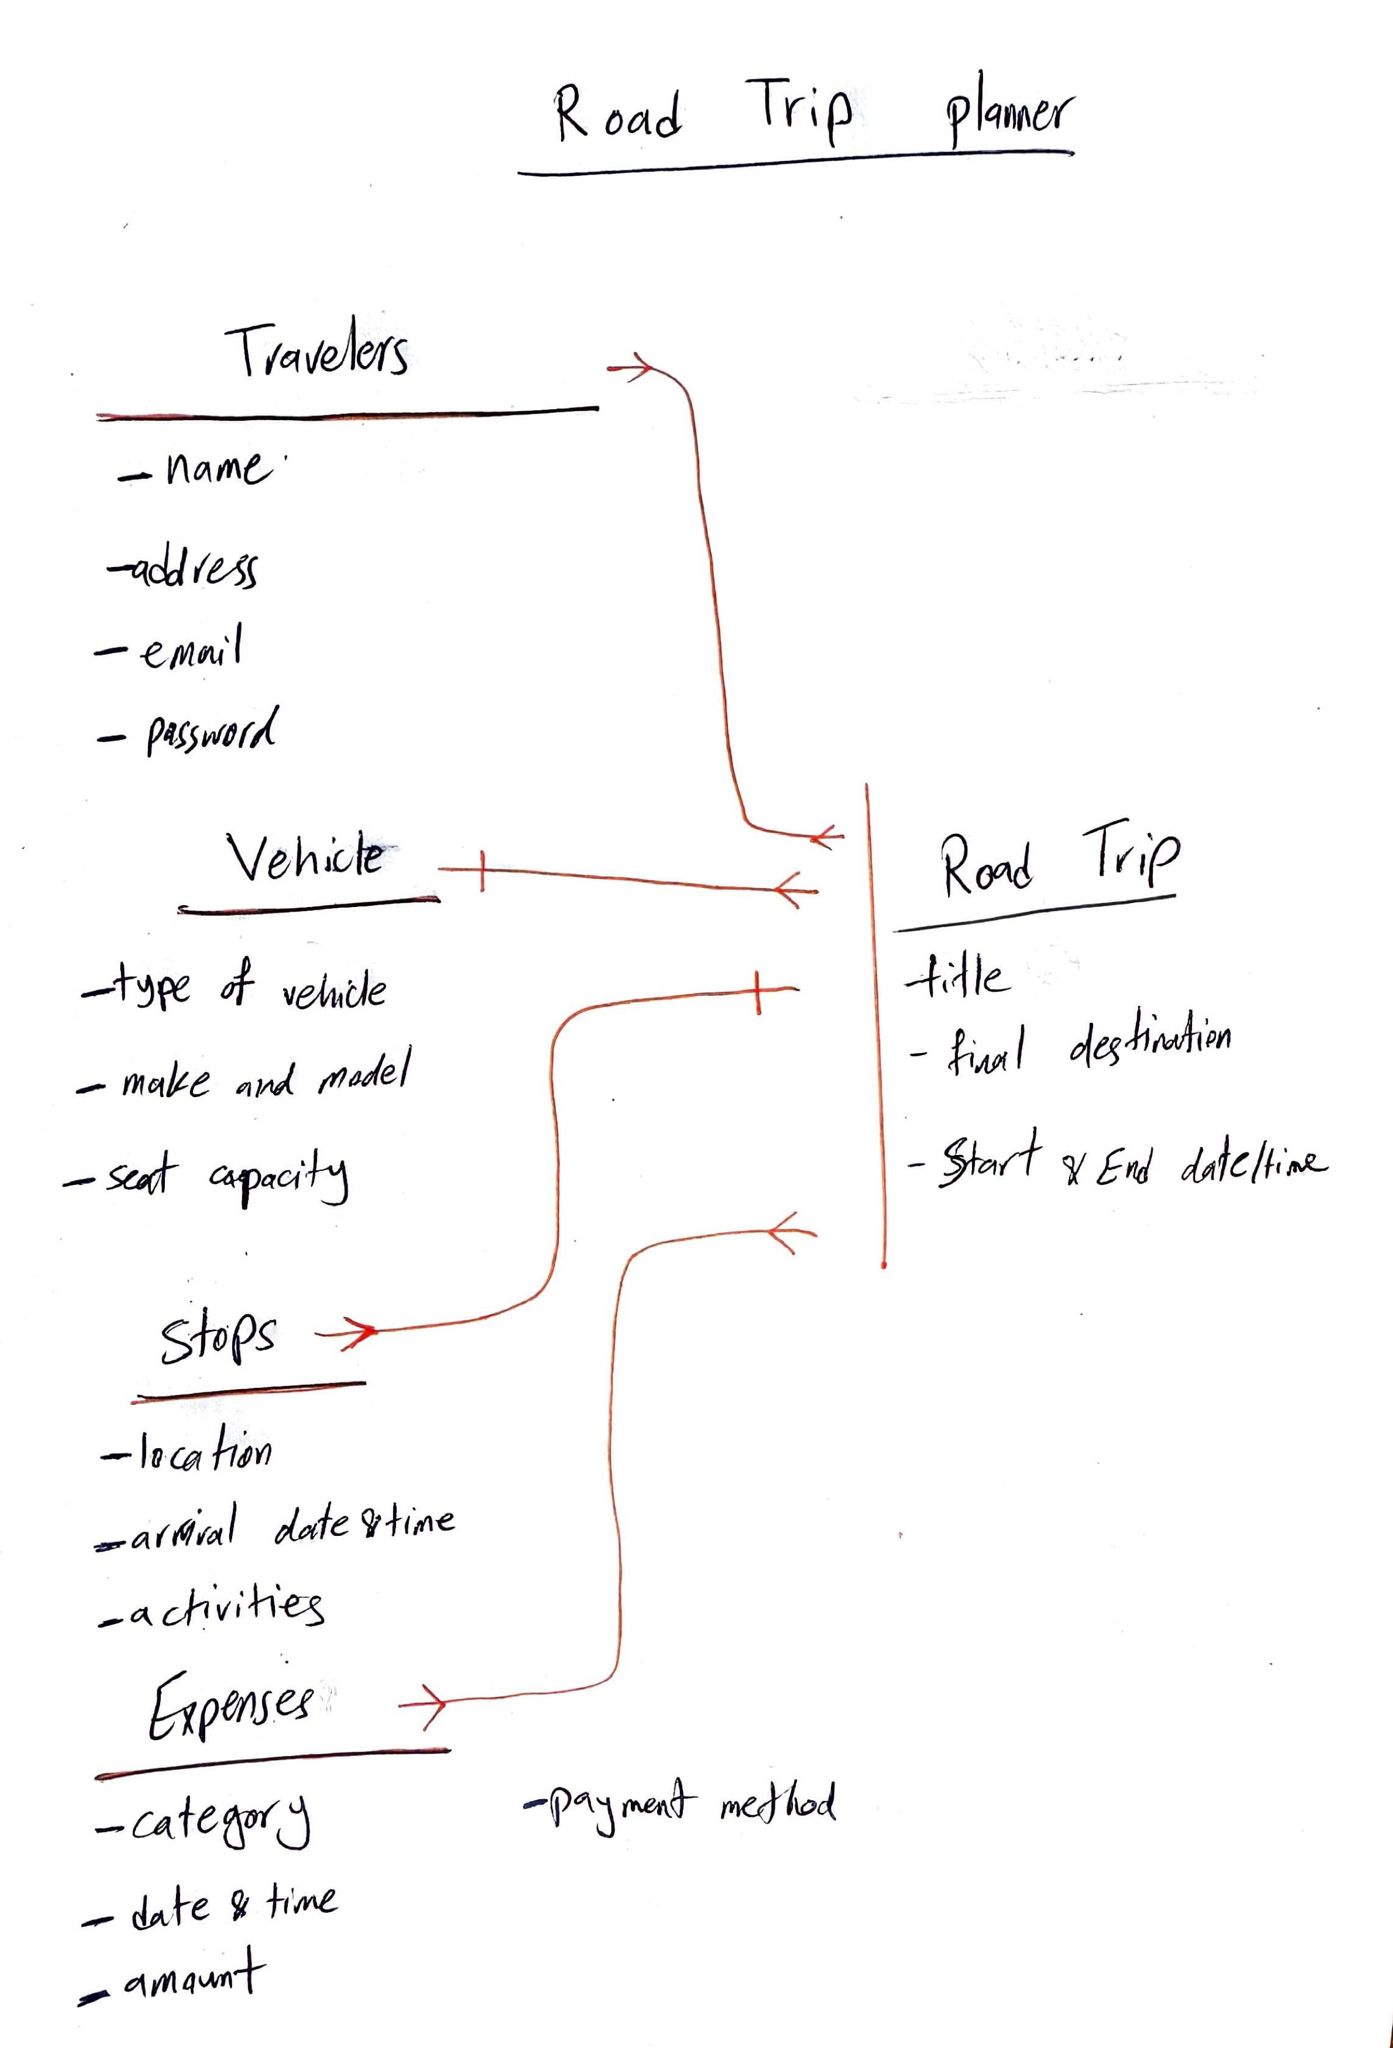 Road Trip planner
Travelers
- name
- address
- email
- password
Vehicle
- type of vehicle
- make and model
- seat capacity
Stops
- location
- arrival date & time
- activities
Expenses
- category
- date & time
- amount
- payment method
Road Trip
- title
- final destination
- Start & End date/time